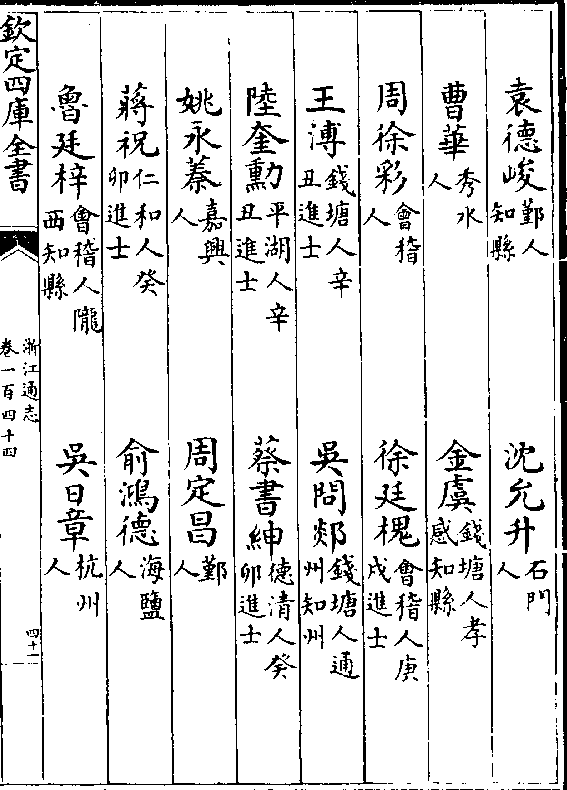 袁德峻鄞人知縣 沈允升石門人
曹華秀水人 金虞錢塘人孝感知縣
周徐彩會稽人 徐廷槐會稽人庚戌進士
王溥錢塘人辛丑進士 吳問郯錢塘人通州知州
陸奎勳平湖人辛丑進士 蔡書紳德清人癸卯進士
姚永蓁嘉興人 周定昌鄞人
蔣祝仁和人癸卯進士 俞鴻德海鹽人
魯廷梓會稽人隴西知縣 吳日章杭州人
欽定四庫全書 浙江通志卷一百四十四 四十一